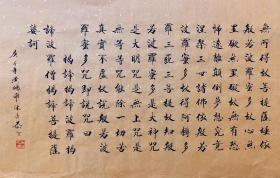 無所得故菩提薩埵依
般若波羅蜜多故心無
罣礙無罣礙故無有恐
怖遠離顛倒夢想究竟
涅槃三世諸佛依般若
波羅蜜多故得阿耨多
羅三藐三菩提故知般
若波羅蜜多是大神咒
是大明咒是無上咒是
無等等咒能除一切苦
真實不虛故說般若波
羅蜜多咒即說咒曰
揭諦揭諦波羅揭
諦波羅僧揭諦菩提薩
婆訶